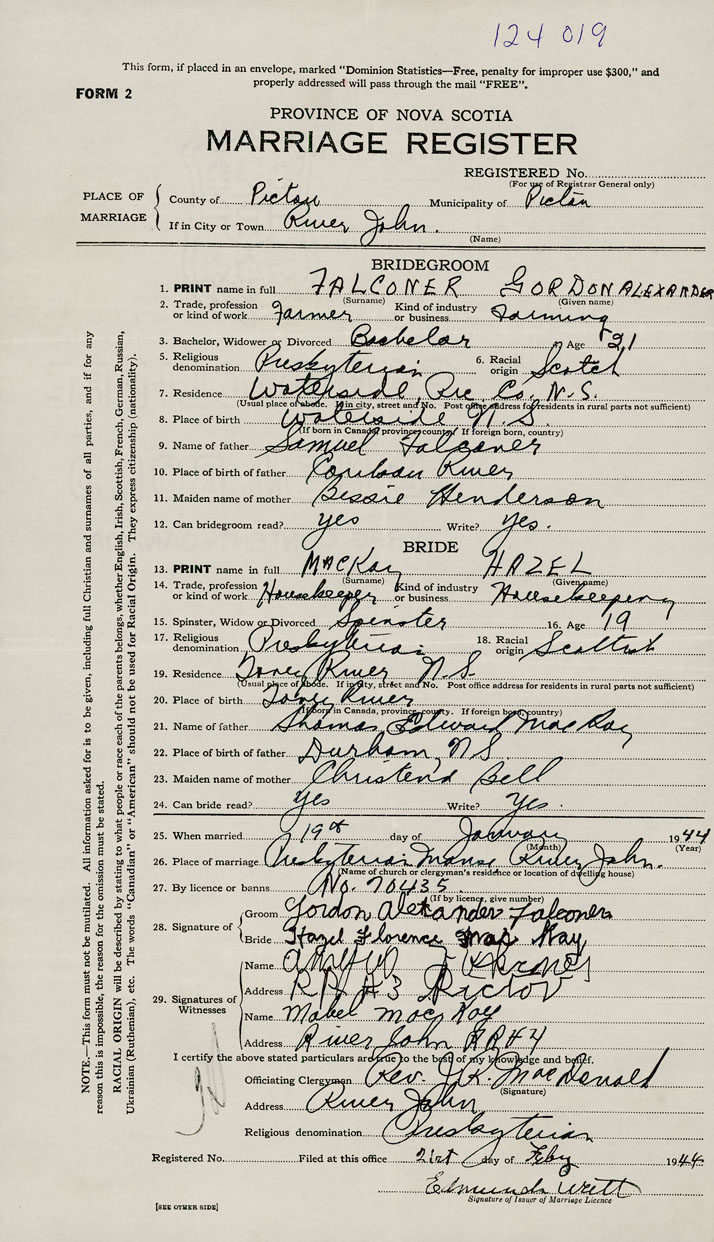 124 019
This form, if placed in an envelope, marked "Dominion Statistics—Free, penalty for improper use $300," and
properly addressed will pass through the mail "FREE".
FORM 2
PROVINCE OF NOVA SCOTIA
MARRIAGE REGISTER
REGISTERED No.
(For use of Registrar General only)
PLACE OF MARRIAGE
County of Pictou Municipality of Pictou
If in City or Town River John.
(Name)
BRIDEGROOM
1. PRINT name in full FALCONER GORDON ALEXANDER
(Surname) (Given name)
2. Trade, profession or kind of work Farmer Kind of industry or business Farming
3. Bachelor, Widower or Divorced Bachelor Age 21
5. Religious denomination Presbyterian 6. Racial origin Scotch
7. Residence Waterside, Pic. Co, N.S.
(Usual place of abode. If in city, street and No. Post office address for residents in rural parts not sufficient)
8. Place of birth Waterside N.S.
(If born in Canada, province, county. If foreign born, country)
9. Name of father Samuel Falconer
10. Place of birth of father Caribou River
11. Maiden name of mother Bessie Henderson
12. Can bridegroom read? yes Write? yes.
BRIDE
13. PRINT name in full MACKay HAZEL
(Surname) (Given name)
14. Trade, profession or kind of work Housekeeper Kind of industry or business Housekeeping
15. Spinster, Widow or Divorced Spinster 16. Age 19
17. Religious denomination Presbyterian 18. Racial origin Scottish
19. Residence Toney River N.S.
(Usual place of abode. If in city, street and No. Post office address for residents in rural parts not sufficient)
20. Place of birth Toney River
(If born in Canada, province, county. If foreign born, country)
21. Name of father Thomas Edward MacKay
22. Place of birth of father Durham, N S.
23. Maiden name of mother Christena Bell
24. Can bride read? Yes Write? Yes.
25. When married 19th day of January 1944
(Month) (Year)
26. Place of marriage Presbyterian Manse River John.
(Name of church or clergyman's residence or location of dwelling house)
27. By licence or banns No. 70435
(If by licence, give number)
28. Signature of
Groom Gordon Alexander Falconer
Bride Hazel Florence MacKay
29. Signatures of Witnesses
Name
Address RR #3 Pictou
Name Mabel MacKay
Address River John RR#4
I certify the above stated particulars are true to the best of my knowledge and belief.
Officiating Clergyman Rev. J.K. MacDonald
(Signature)
Address River John
Religious denomination Presbyterian
Registered No. Filed at this office 21st day of Feby 1944
Signature of Issuer of Marriage Licence
[SEE OTHER SIDE]
NOTE.—This form must not be mutilated. All information asked for is to be given, including full Christian and surnames of all parties, and if for any
reason this is impossible, the reason for the omission must be stated.
RACIAL ORIGIN will be described by stating to what people or race each of the parents belongs, whether English, Irish, Scottish, French, German, Russian,
Ukrainian (Ruthenian), etc. The words "Canadian" or "American" should not be used for Racial Origin. They express citizenship (nationality).